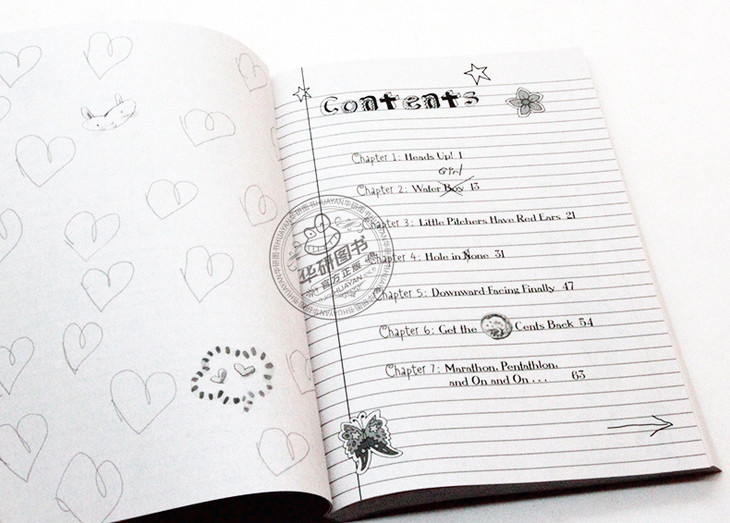 Contents
Chapter 1: Heads Up! 1
Girl
Chapter 2: Water Boy 13
Chapter 3: Little Pitchers Have Red Ears 21
Chapter 4: Hole in None 31
Chapter 5: Downward-Facing Finally 47
Chapter 6: Get the Cents Back 54
Chapter 7: Marathon, Pentathlon,
and On and On . . . 63
华研图书
官方正版
HUAYAN